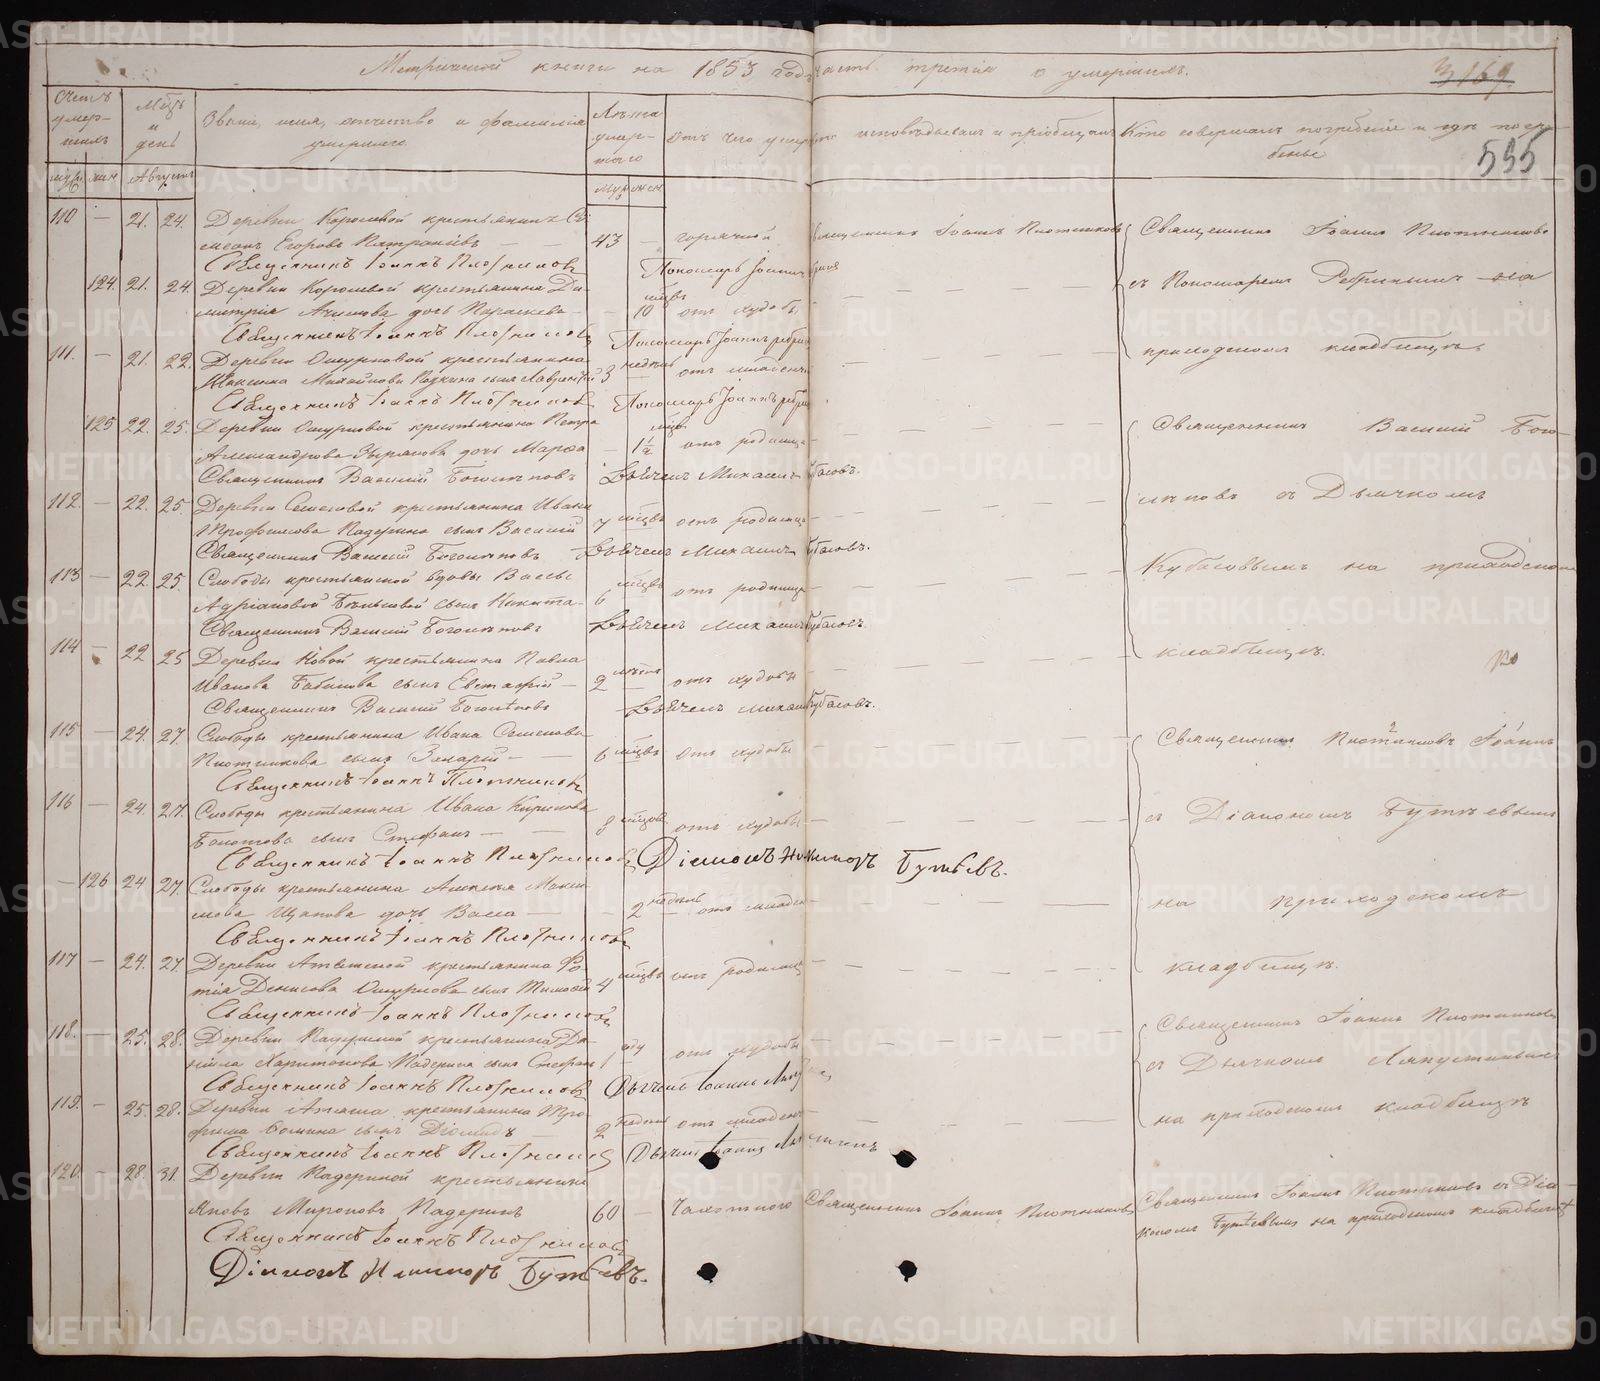 Метрической книги на 1853 годъ часть третія о умершихъ.
169.
595
Счетъ умершихъ
Мѣсяцъ и день
Званіе, имя, отчество и фамилія умершаго
Лѣта умершаго
Отъ чего умеръ
Кто исповѣдывалъ и пріобщалъ
Кто совершалъ погребеніе и гдѣ погребены
муж. жен. Августъ Муж. жен.
110 — 21. 24. Деревни Королевой крестьянинъ Си-
меонъ Егоровъ 43 — горячкой Священникъ Іоаннъ Плотниковъ
Священникъ Іоаннъ Плотниковъ Пономарь Іоаннъ
124. 21. 24. Деревни Королевой крестьянина Ди-
митрія дочь Параскева — 10 мѣсц. отъ худобы
Священникъ Іоаннъ Плотниковъ Пономарь Іоаннъ
111. — 21. 22. Деревни Ошурковой крестьянина
Максима Михайлова сынъ Лаврентій 3 недѣль отъ младенч.
Священникъ Іоаннъ Плотниковъ Пономарь Іоаннъ
125 22. 25. Деревни Ошурковой крестьянина Петра
Александрова Зырянова дочь Марѳа — 1½ мѣсц. отъ родимца
Священникъ Василій Боголѣповъ Дьячекъ Михаилъ Кубасовъ.
112. — 22. 25. Деревни крестьянина Ивана
Трофимова Падерина сынъ Василій 7 мѣсцъ отъ родимца
Священникъ Василій Боголѣповъ Дьячекъ Михаилъ Кубасовъ.
113 — 22 25. Слободы крестьянской вдовы Вассы
Адріановой сынъ Никита 6 мѣсцъ отъ родимца
Священникъ Василій Боголѣповъ Дьячекъ Михаилъ Кубасовъ.
114 — 22 25 Деревни Новой крестьянина Павла
Иванова сынъ Евстафій — 2 лѣтъ отъ худобы
Священникъ Василій Боголѣповъ Дьячекъ Михаилъ Кубасовъ.
115 — 24. 27. Слободы крестьянина Ивана Семенова
Плотникова сынъ Захарій — 6 мѣсцъ отъ худобы
Священникъ Іоаннъ Плотниковъ
116 — 24. 27. Слободы крестьянина Ивана Кирилова
Болотова сынъ Стефанъ — 8 мѣсцовъ отъ худобы
Священникъ Іоаннъ Плотниковъ Діаконъ Никаноръ Бутѣевъ.
— 126 24 27. Слободы крестьянина Алексѣя Макси-
мова Щапова дочь Васса — 2 недѣль отъ младен.
Священникъ Іоаннъ Плотниковъ
117 — 24. 27. Деревни крестьянина Фо-
тія Денисова Ошуркова сынъ Тимоѳей 4 мѣсцъ отъ родимца
Священникъ Іоаннъ Плотниковъ
118. — 25. 28. Деревни Падериной крестьянина Да-
ніила Харитонова Падерина сынъ Стефанъ 1 году отъ худобы
Священникъ Іоаннъ Плотниковъ Дьячекъ Іоаннъ
119. — 25. 28. Деревни крестьянина Тро-
фима Фомина сынъ Діомидъ 2 недѣль отъ младен.
Священникъ Іоаннъ Плотниковъ Дьячекъ Іоаннъ
120 — 28. 31. Деревни Падериной крестьянинъ
Яковъ Мироновъ Падеринъ 60 — Чахотного Священникъ Іоаннъ Плотниковъ
Священникъ Іоаннъ Плотниковъ
Діаконъ Никаноръ Бутѣевъ.
Священникъ Іоаннъ Плотниковъ
съ Пономаремъ Ребринымъ на
приходскомъ кладбищѣ.
Священникъ Василій Бого-
лѣповъ съ Дьячкомъ
Кубасовымъ на приходскомъ
кладбищѣ.
Священникъ Плотниковъ Іоаннъ
съ Діакономъ Бутѣевымъ
на приходскомъ
кладбищѣ.
Священникъ Іоаннъ Плотниковъ
съ Дьячкомъ Ляпустинымъ
на приходскомъ кладбищѣ
Священникъ Іоаннъ Плотниковъ съ Діа-
кономъ Бутѣевымъ на приходскомъ кладбищѣ
METRIKI.GASO-URAL.RU